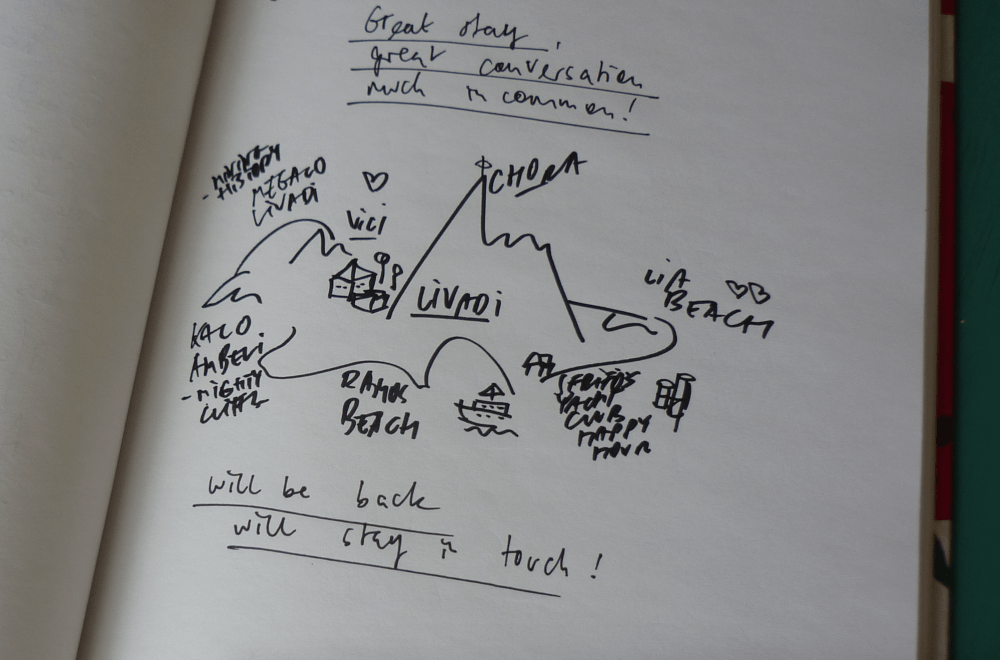 Great stay,
great conversation
much in common!
- MINING
HISTORY
MEGALO
LIVADI
ViCi
CHORA
LIVADI
LIA
BEACH
KALO
AMBELI
- MIGHTY
RAMOS
BEACH
YACHT
CLUB
HAPPY
HOUR
will be back
will stay in touch!